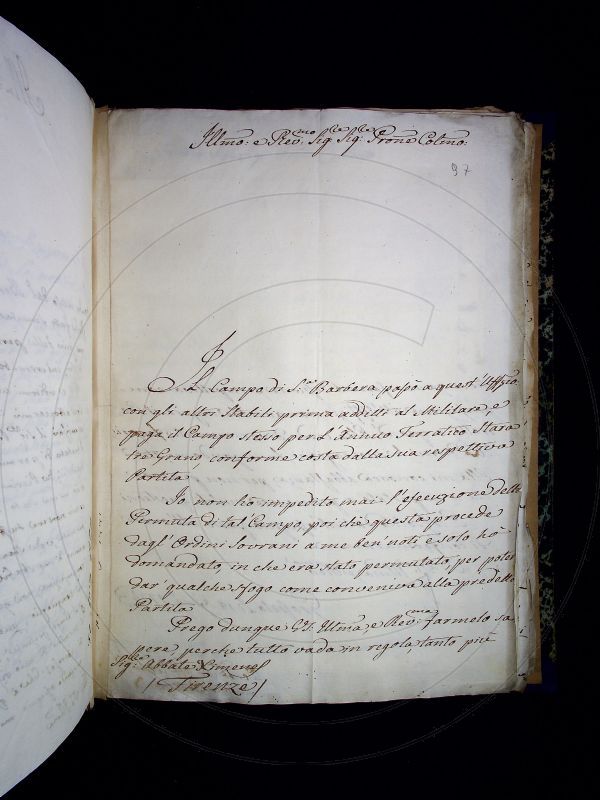 Illmo: e Rev.mo Sig.re Sig.re Prone Colmo:
97
Il Campo di S.a Barbera passò a quest'Uffizio
con gli altri Stabili prima additti al Militare, e
paga il Campo stesso per L'Annuo Terratico Stara
tre Grano, conforme costa dalla sua respettiva
Partita
Io non hò impedito mai l'esecuzione della
Permuta di tal Campo, poi chè questa procede
dagl'Ordini Sovrani a me ben'noti e solo hò
domandato, in che era stato permutato, per poter
dar' qualche sfogo come conveniva alla predetta
Partita
Prego dunque VS. Illma, e Rev.ma farmelo sa
pere, perche tutto vada in regola, tanto più
Sig.re Abbate Ximenes
/ Firenze /